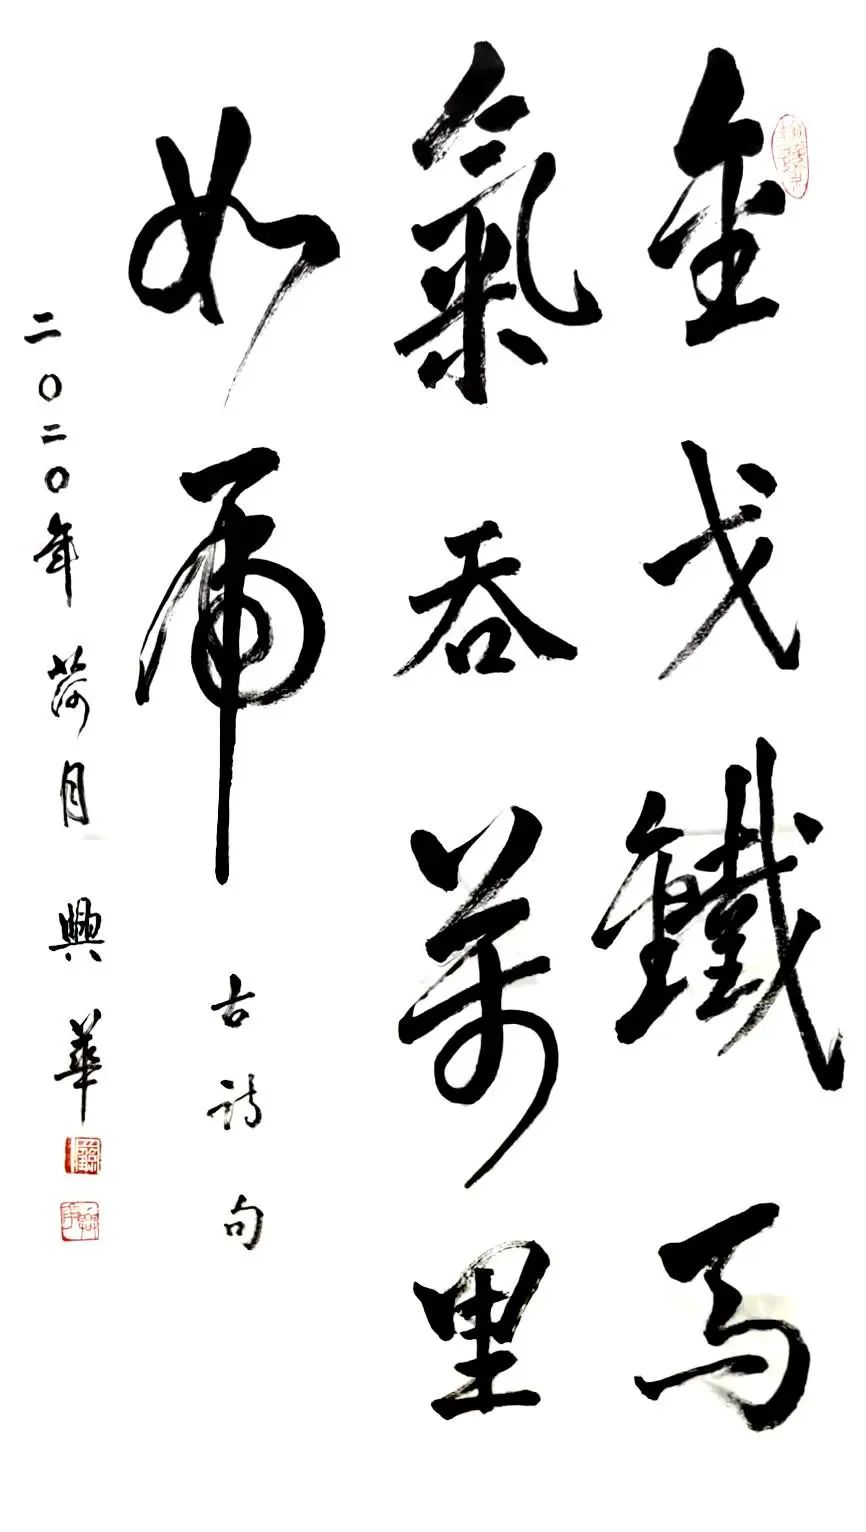 金戈鐵馬
氣吞萬里
如虎
古詩句
二〇二〇年荷月 興華